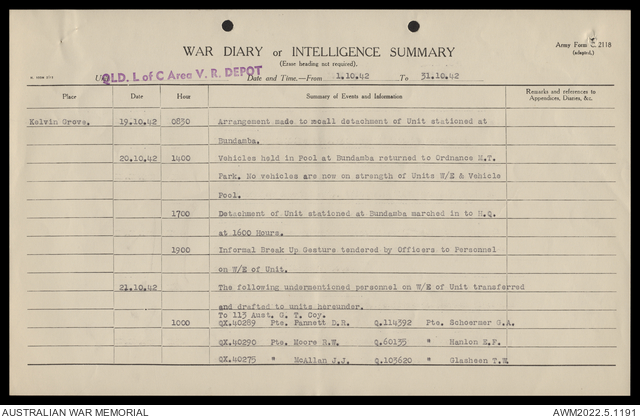 Army Form C. 2118
(adapted.)
WAR DIARY or INTELLIGENCE SUMMARY
(Erase heading not required).
QLD. L of C Area V. R. DEPOT
Date and Time.—From 1.10.42 To 31.10.42
Place Date Hour Summary of Events and Information Remarks and references to Appendices, Diaries, &c.
Kelvin Grove. 19.10.42 0830 Arrangement made to recall detachment of Unit stationed at
Bundamba.
20.10.42 1400 Vehicles held in Pool at Bundamba returned to Ordnance M.T.
Park. No vehicles are now on strength of Units W/E & Vehicle
Pool.
1700 Detachment of Unit stationed at Bundamba marched in to H.Q.
at 1600 Hours.
1900 Informal Break Up Gesture tendered by Officers to Personnel
on W/E of Unit.
21.10.42 The following undermentioned personnel on W/E of Unit transferred
and drafted to units hereunder.
To 113 Aust. G. T. Coy.
1000 QX.40289 Pte. Fannett D.R. Q.114392 Pte. Schoermer G.A.
QX.40290 Pte. Moore R.W. Q.60135 " Hanlon E.F.
QX.40275 " McAllan J.J. Q.103620 " Glasheen T.W.
AUSTRALIAN WAR MEMORIAL AWM2022.5.1191